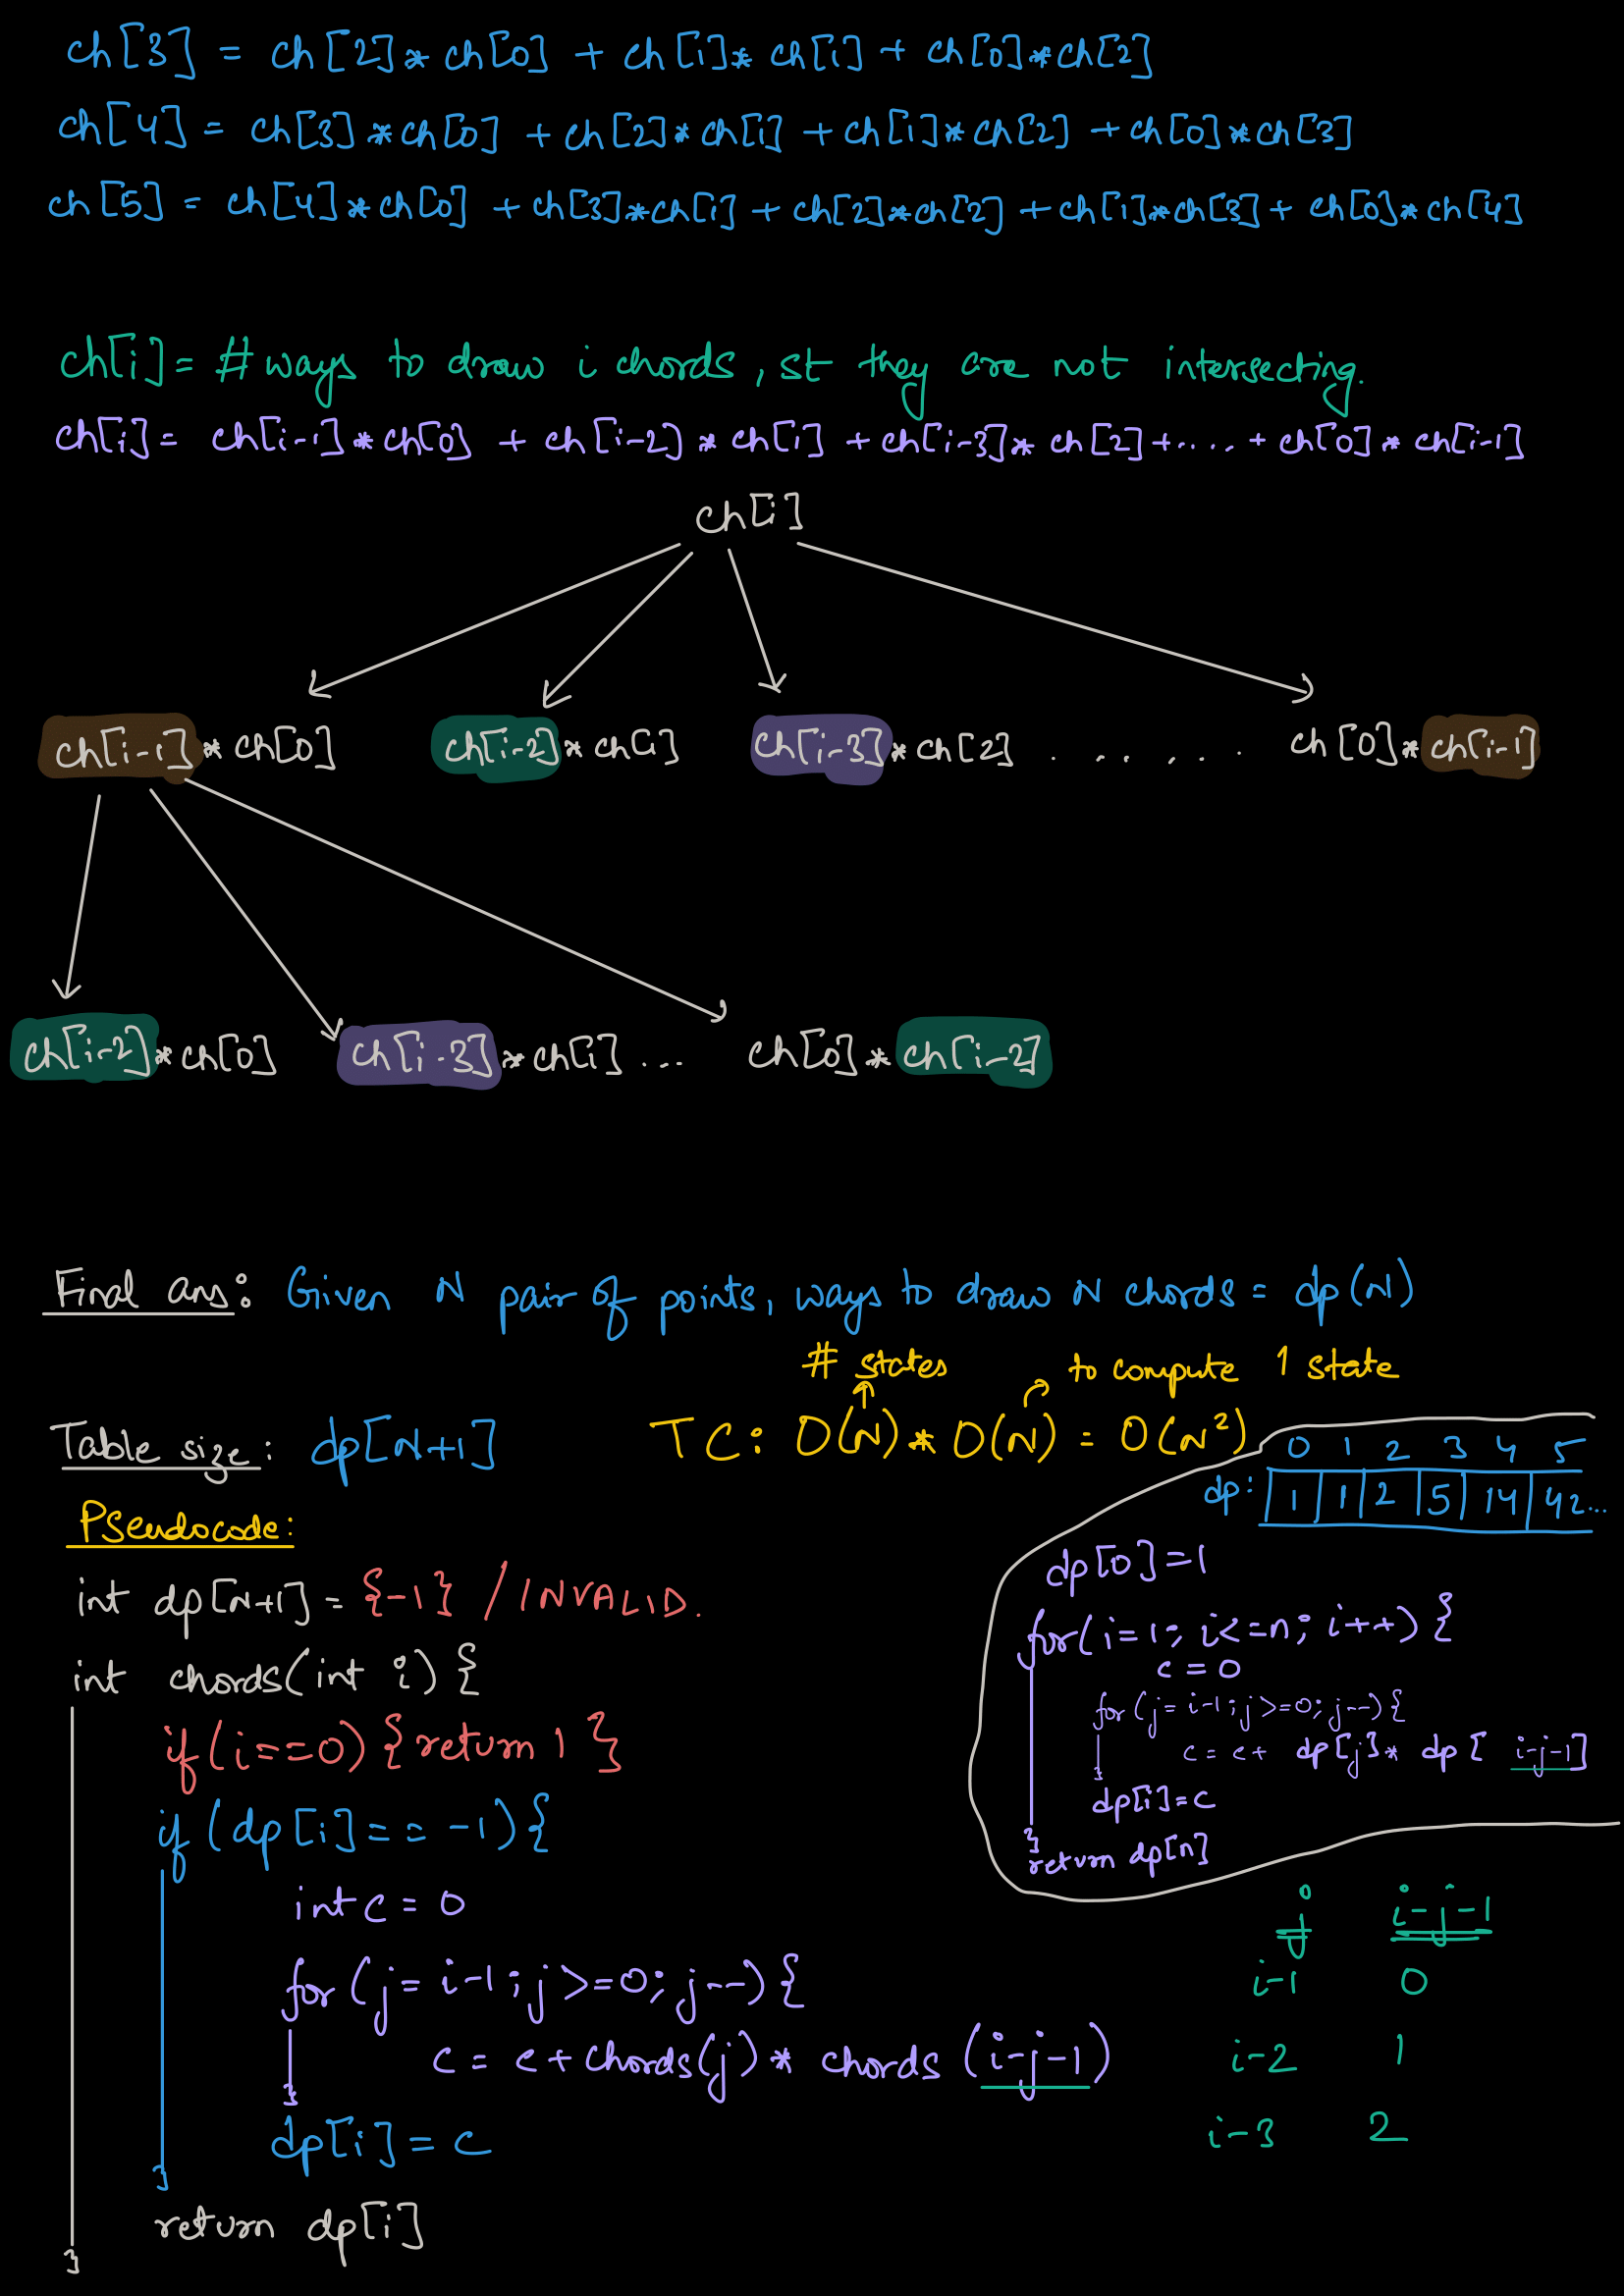 ch[3] = ch[2]* ch[0] + ch[1]* ch[1] + ch[0]*ch[2]
ch[4] = ch[3]*ch[0] + ch[2]*ch[1] + ch[1]*ch[2] + ch[0]*ch[3]
ch[5] = ch[4]*ch[0] + ch[3]*ch[1] + ch[2]*ch[2] + ch[1]*ch[3] + ch[0]*ch[4]
ch[i] = # ways to draw i chords, st they are not intersecting.
ch[i] = ch[i-1]*ch[0] + ch[i-2] * ch[1] + ch[i-3]* ch[2] +.... + ch[0]* ch[i-1]
ch[i]
ch[i-1]* ch[0] ch[i-2]* ch[1] ch[i-3]*ch[2] . . . . . . ch[0]* ch[i-1]
ch[i-2]*ch[0] ch[i-3]*ch[1] ... ch[0]* ch[i-2]
Final ans: Given N pair of points, ways to draw N chords = dp(N)
# states to compute 1 state
Table size: dp[N+1] TC: O(N)* O(N) = O(N²)
0 1 2 3 4 5
dp: 1 1 2 5 14 42...
Pseudocode:
int dp[N+1] = {-1} / INVALID.
int chords(int i) {
if(i==0) {return 1 }
if (dp[i] == -1) {
int c = 0
for (j= i-1; j>=0; j--) {
c = c+chords(j) * chords (i-j-1)
}
dp[i] = c
}
return dp[i]
}
dp[0]=1
for(i=1; i<=n; i++) {
c = 0
for (j= i-1; j>=0; j--) {
c = c+ dp[j]* dp [ i-j-1]
}
dp[i]=c
}
return dp[n]
j i-j-1
i-1 0
i-2 1
i-3 2